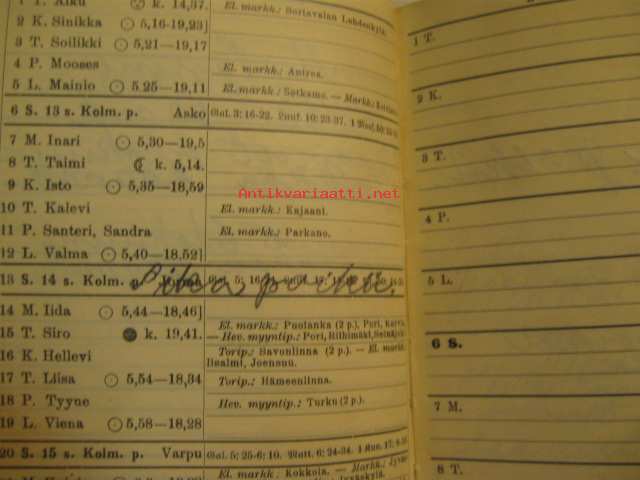 1 T. Aiku k. 14,37.
El. markk.: Sortavalan Lahdenkylä.
2 K. Sinikka 5,16-19,23]
3 T. Soilikki 5,21—19,17
4 P. Mooses
El. markk.: Anttea.
5 L. Mainio 5,25—19,11
El. markk.: Sotkamo. — Markk.:
6 S. 13 s. Kolm. p. Asko
Gal. 3; 16-22. Luuk. 10; 23-37.
7 M. Inari 5,30—19,5
8 T. Taimi k. 5,14.
9 K. Isto 5,35—18,59
Antikvariaatti.net
10 T. Kalevi
El. markk.: Kajaani.
11 P. Santeri, Sandra
El. markk.: Parkano.
12 L. Valma 5,40—18,52]
13 S. 14 s. Kolm. p.
14 M. Iida 5,44—18,46]
El. markk.: Puolanka (2 p.), Pori,
15 T. Siro k. 19,41.
— Hev. myyntip.: Pori, Riihimäki, Seinäjoki
16 K. Hellevi
Torip.: Savonlinna (2 p.). — El. markk.
Iisalmi, Joensuu.
17 T. Liisa 5,54—18,34
Torip.: Hämeenlinna.
18 P. Tyyne
Hev. myyntip.: Turku (2 p.).
19 L. Viena 5,58—18,28
20 S. 15 s. Kolm. p. Varpu
Gal. 5; 25-6; 10. Matt. 6; 24-34.
El. markk.: Kokkola. — Markk.:
1 T.
2 K.
3 T.
4 P.
5 L.
6 S.
7 M.
8 T.